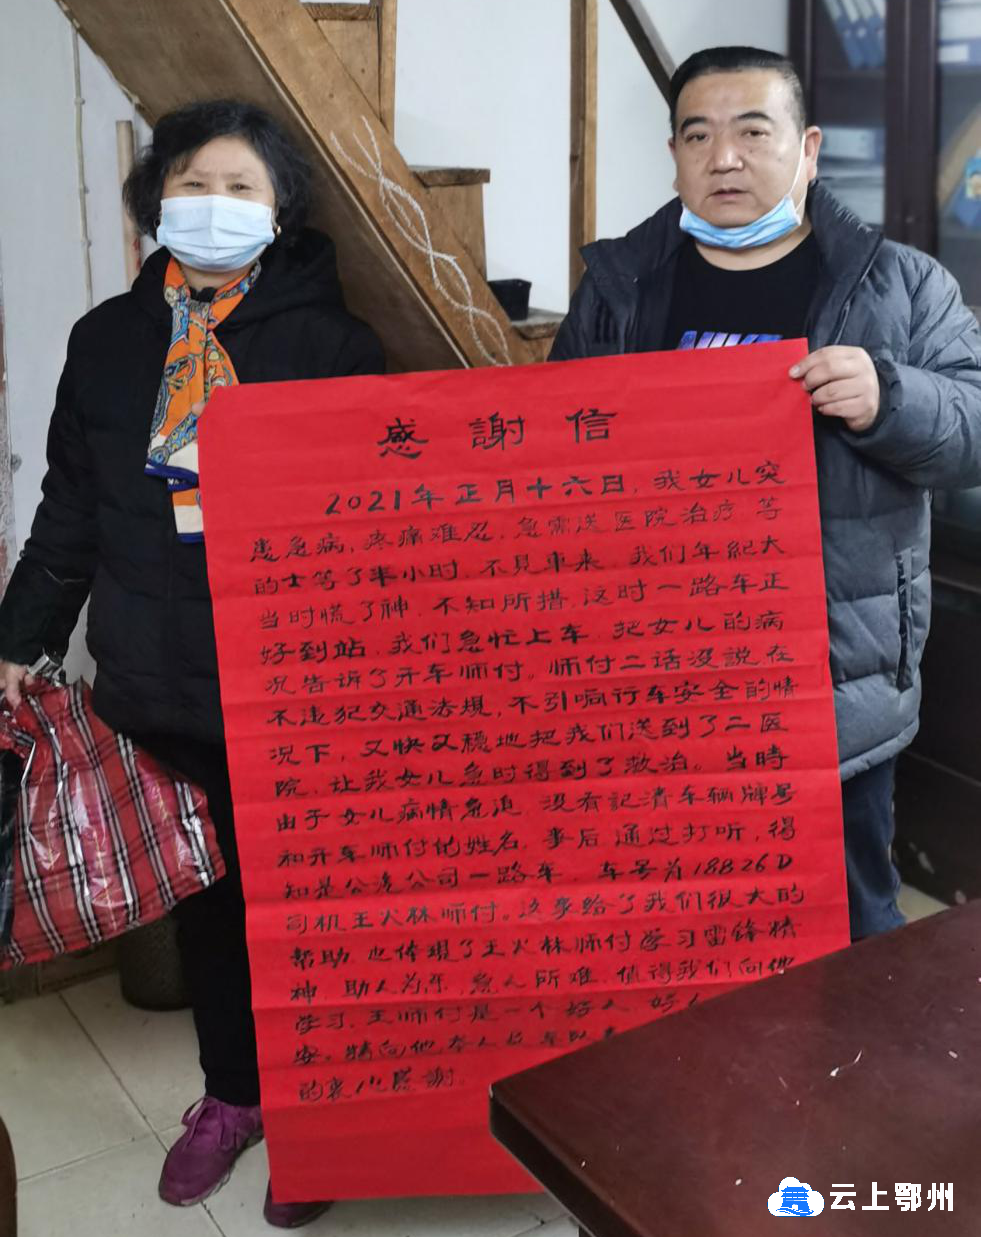 感謝信
2021年正月十六日,我女儿突
患急病,疼痛难忍,急需送医院治疗等
的士等了半小时,不見車来,我们年紀大
当时慌了神,不知所措,这时一路车正
好到站,我们急忙上车,把女儿的病
况告诉了开车师付。师付二话没説,在
不违犯交通法規,不引响行车安全的情
况下,又快又稳地把我们送到了二医
院,让我女儿急时得到了救治。当時
由于女儿病情急迫,没有記清车辆牌号
和开车师付的姓名,事后,通过打听,得
知是公汽公司一路车,车号为18826D
司机王火林师付。这事给了我们很大的
帮助,也体現了王火林师付学习雷锋精
神,助人为乐,急人所难,值得我们向他
学习,王师付是一个好人,好人
安。特向他本人
的衷心感謝。
云上鄂州